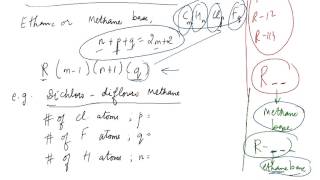 Ethane or Methane base,
Cm Hn Clp Fq
n+p+q = 2m+2
R (m-1)(n+1)(q)
e.g. Dichloro - difloro methane
# of cl atoms, p=
# of F atoms, q=
# of H atoms, n=
R-12
R-114
R - -
methane
base
R - - -
ethane base